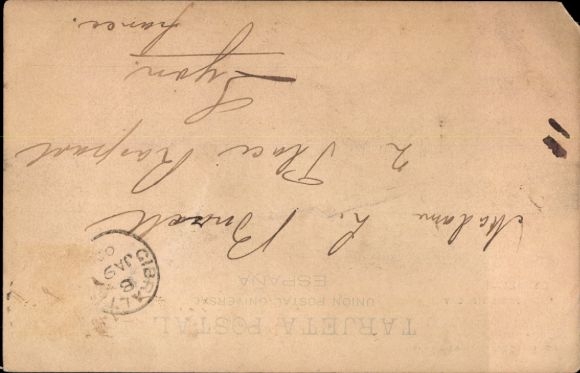 TARJETA POSTAL
UNION POSTAL UNIVERSAL
ESPAÑA
GIBRALTAR
JA 9
Madame L.
2 Place Raspail
Lyon.
france.